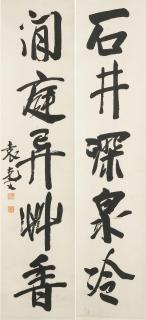 石井深泉冷
閒庭异艸香
袁克文